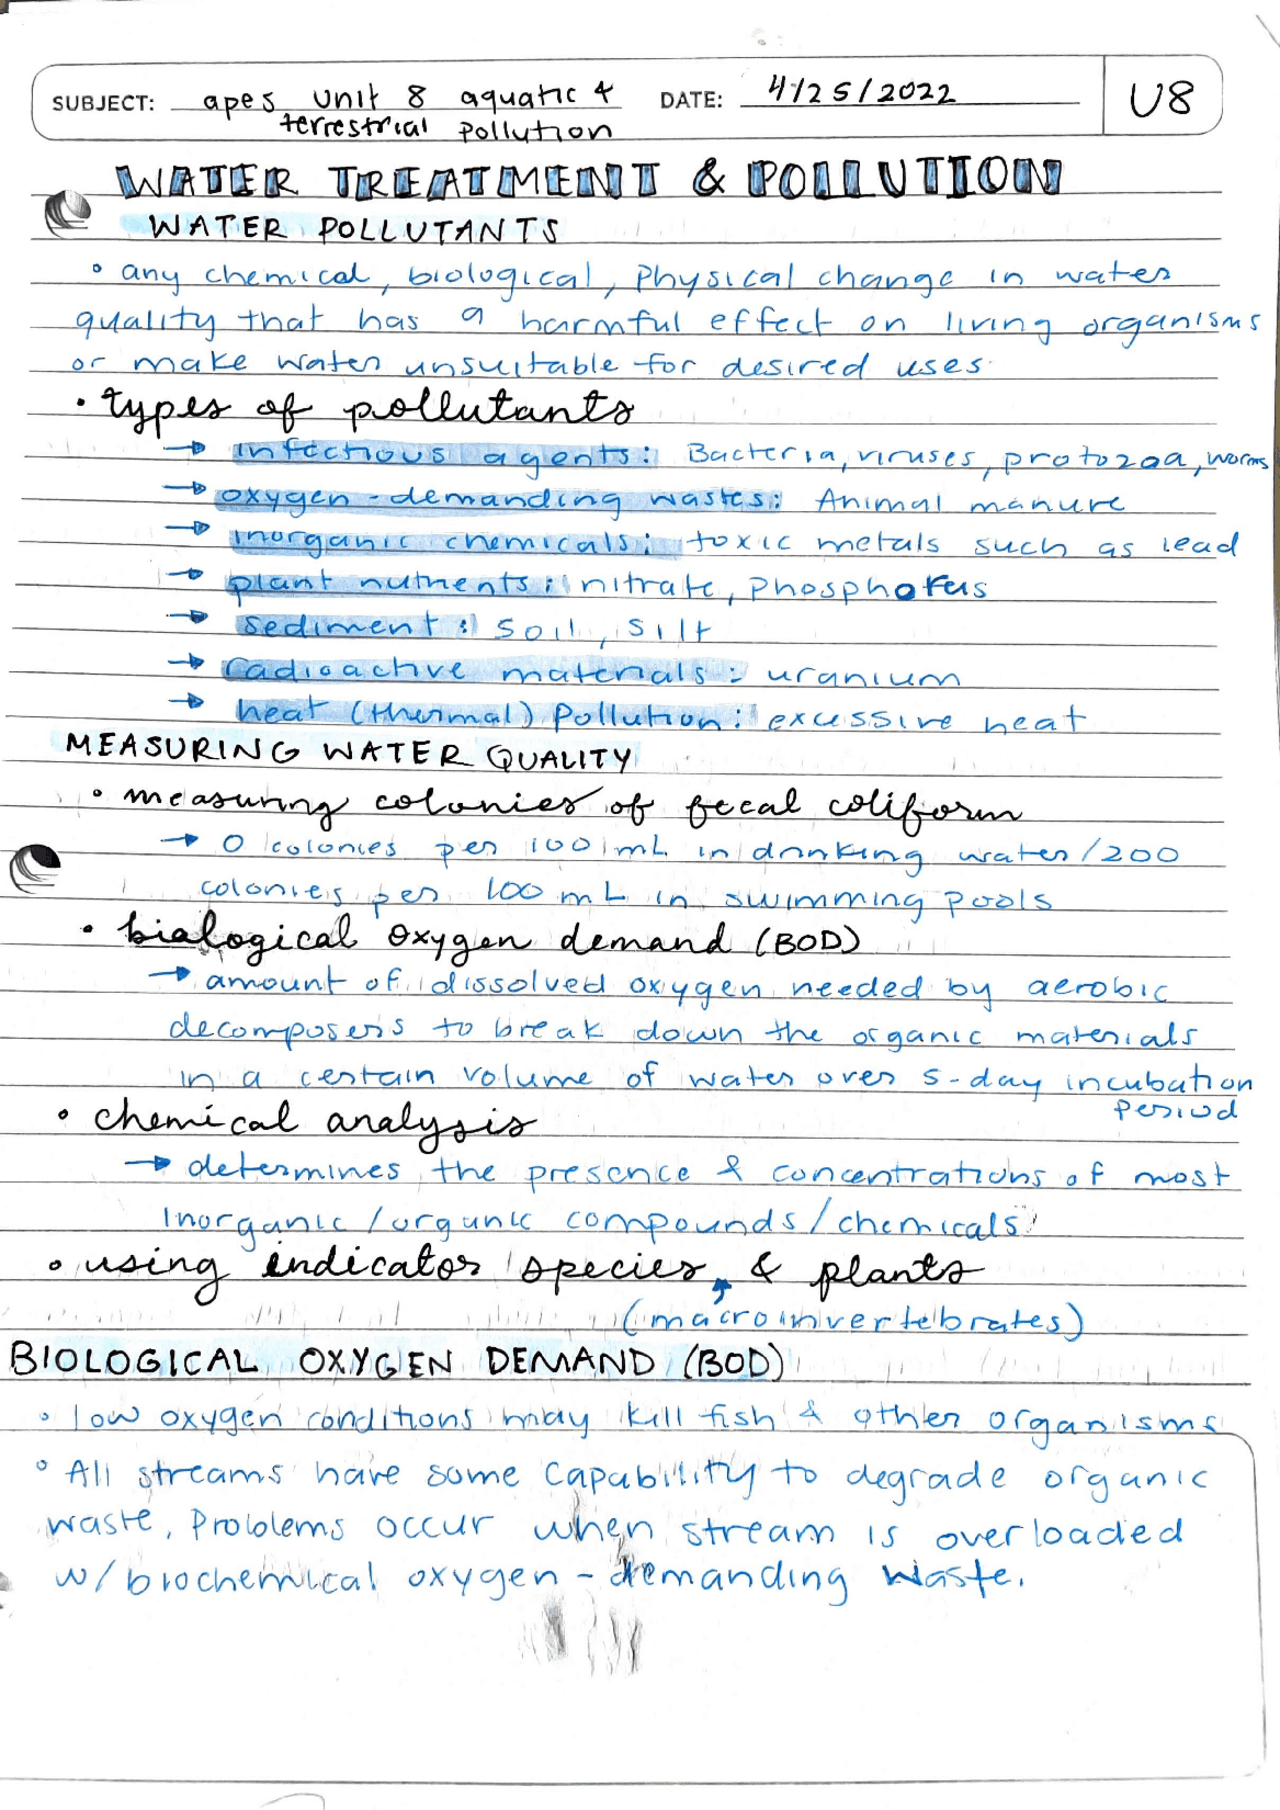 SUBJECT: apes unit 8 aquatic & terrestrial pollution DATE: 4/25/2022 U8
WATER TREATMENT & POLLUTION
WATER POLLUTANTS
• any chemical, biological, physical change in water
quality that has a harmful effect on living organisms
or make water unsuitable for desired uses.
• types of pollutants
→ infectious agents: Bacteria, viruses, protozoa, worms
→ oxygen-demanding wastes: Animal manure
→ inorganic chemicals: toxic metals such as lead
→ plant nutrients: nitrate, phosphorus
→ sediment: soil, silt
→ radioactive materials: uranium
→ heat (thermal) pollution: excessive heat
MEASURING WATER QUALITY
• measuring colonies of fecal coliform
→ 0 colonies per 100 mL in drinking water/200
colonies per 100 mL in swimming pools
• biological oxygen demand (BOD)
→ amount of dissolved oxygen needed by aerobic
decomposers to break down the organic materials
in a certain volume of water over 5-day incubation
period
• chemical analysis
→ determines the presence & concentrations of most
inorganic/organic compounds/chemicals
• using indicator species & plants
(macroinvertebrates)
BIOLOGICAL OXYGEN DEMAND (BOD)
• low oxygen conditions may kill fish & other organisms
• All streams have some capability to degrade organic
waste, Problems occur when stream is overloaded
w/ biochemical oxygen-demanding waste.